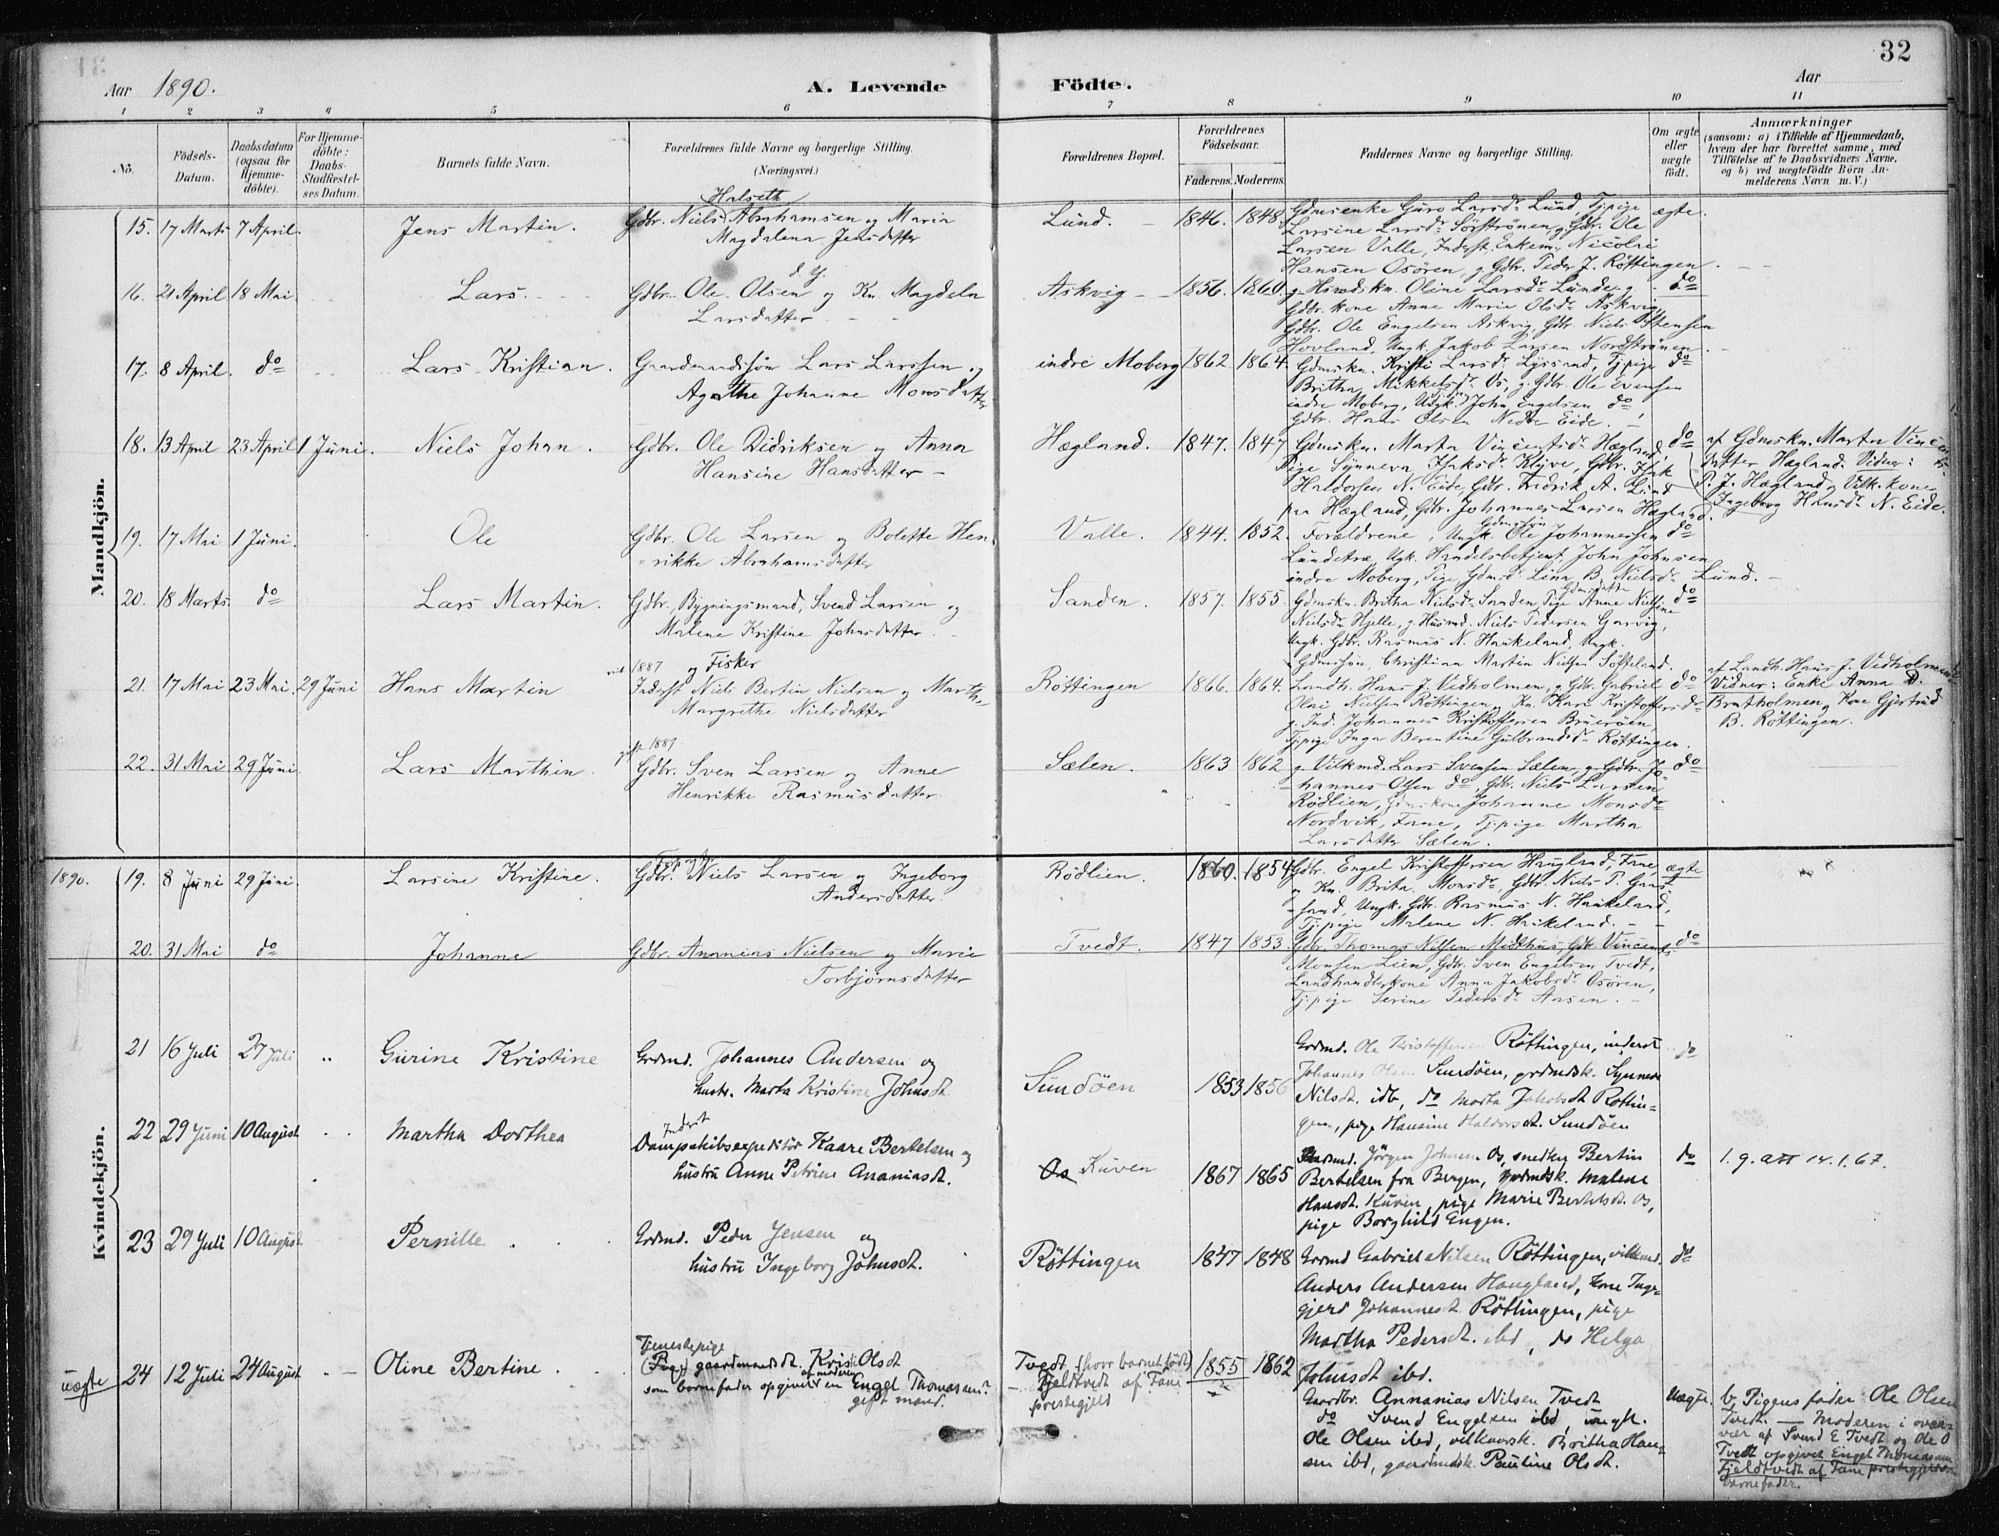 32
Aar 1890.
A. Levende Födte.
Aar
1 2 3 4 5 6 7 8 9 10 11
No.
Födsels-Datum.
Daabsdatum (ogsaa for Hjemmedöbte).
For Hjemmedöbte: Daabs-Stadfæstelses Datum.
Barnets fulde Navn.
Forældrenes fulde Navne og borgerlige Stilling. (Næringsvei.)
Forældrenes Bopæl.
Forældrenes Födselsaar.
Faderens. Moderens.
Faddernes Navne og borgerlige Stilling.
Om ægte eller uægte födt.
Anmærkninger
(saasom: a) i Tilfælde af Hjemmedaab, hvem der har forrettet samme, med Tilföielse af to Daabsvidners Navne, og b) ved uægtefödte Börn Anmelderens Navn m. V.)
Mandkjön.
15. 17 Marts 7 April. Jens Martin.
Halseth
Gdbr. Niels Abrahamsen og Maria
Magdalena Jensdatter
Lund. 1846. 1848.
Gdmsenke Guro Larsdr Lund, Tjpige
Larsine Larsdr Sörströnen, g. Gdbr. Ole
Larsen Valle, Inderst, Enkem. Nicolai
Hansen Osören, g. Gdbr. Peder J. Röttingen.
ægte.
16. 21 April 18 Mai Lars.
d. y.
Gdbr. Ole Olsen og Kn. Magdela
Larsdatter
Askvig 1856. 1860.
g. Oline Larsdr Lunde, g.
Gdbr. kone Anne Marie Olsdr Askvig,
Gdbr. Ole Engelsen Askvig, Gdbr. Niels Östensen
Hovland, Ungk. Jakob Larsen Nordströnen.
do
17. 8 April. do Lars Kristian.
Gaardmandssön Lars Larssen og
Agathe Johanne Monsdatter
indre Moberg 1862 1864.
Gdmskn. Kristi Larsdr Lyssand, Tjpige
Britha Mikkelsdr Os, g. Gdbr. Ole Evensen
indre Moberg, Ungk. John Engelsen do,
Gdbr. Hans Olsen Nedre Eide.
do
18. 13 April 23 April 1 Juni. Niels Johan.
Gdbr. Ole Didriksen og Anna
Hansine Hansdatter
Hægland. 1847. 1847
Gdmskn. Marta Vincentsdr Hægland,
Pige Synneva Isaksdr Klyve, Gdbr. Isak
Haldorsen N. Eide, Gdbr. Fredrik A. Lind
paa Hægland, Gdbr. Johannes Larsen Hægland.
do
af Gdmskn. Marta Vincents
datter Hægland. Vidner:
P. J. Hægland, Vilk. kone
Ingeborg Hansdr N. Eide.
19. 17 Mai 1 Juni. Ole
Gdbr. Ole Larsen og Bolette Hen-
rikke Abrahamsdatter
Valle. 1844. 1852.
Forældrene, Ungk. Gdmssön Ole Johannessen
Lundetræ, Ugk. Handelsbetjent John Johnsen
indre Moberg, Pige Gdmsd. Lina B. Nielsdr Lund.
do
20. 18 Marts. do Lars Martin.
Gdbr., Bygningsmand, Svend Larsen og
Malene Kristine Johnsdatter.
Sanden. 1857. 1855.
Gdmskn. Britha Nielsdr Sanden, Pige Gdmsdatter Anne Nilsine
Nielsdr Hjelle, g. Husmd. Niels Pedersen Garvig,
Ungk. Gdbr. Rasmus N. Haukeland, Ungk.
Gdmssön, Christian Martin Nielsen Söfteland.
do
21. 17 Mai 23 Mai. 29 Juni Hans Martin
viet 1887 og Fisker
Inderst Niels Bertin Nielsen og Martha
Margrethe Nielsdatter
Röttingen 1866. 1864.
Landh. Hans J. Vedholmen, g. Gdbr. Gabriel
Olai Nielsen Röttingen, Kn. Kari Kristoffersdr
g. Ind. Johannes Kristoffersen Brueröen,
Tjpige Inga Berentine Gulbrandsdr Röttingen.
do
af Landh. Hans J. Vedholmen
Vidner: Enke Anna D.
Bratholmen, Kone Gjertrud
B. Röttingen.
22. 31 Mai 29 Juni. Lars Marthin.
1889.
Gdbr. Sven Larsen og Anne
Henrikke Rasmusdatter.
Sælen. 1863 1862
g. Vilkmd. Lars Svensen Sælen, g. Gdbr. Jo-
hannes Olsen do, Gdbr. Niels Larsen
Rödlien, Gdmskone Johanne Monsdr
Nordvik, Fane, Tjpige Martha
Larsdatter Sælen.
do
Kvindekjön.
1890. 19. 8 Juni 29 Juni. Larsine Kristine.
Gdbr. Niels Larsen og Ingeborg
Andersdatter.
Rödlien. 1860. 1854
Gdbr. Engel Kristoffersen Haugland, Fane,
og Kn. Brita Monsdr, Gdbr. Niels P. Gaas-
sand, Ungk. Gdbr. Rasmus N. Haukeland,
Tjpige Malene N. Haukeland.
ægte
20. 31 Mai do Johanne
Gdbr. Ananias Nielsen og Marie
Torbjörnsdatter
Tvedt. 1847 1853.
Gdbr. Thomas Nilsen Midthus, Gdbr. Vincents
Monsen Lien, Gdbr. Sven Engelsen Tvedt,
Landhandlerkone Anna Jakobsdr Osören,
Tjpige Serine Pedersdr Aasen.
do
21 16 Juli 27 Juli Gurine Kristine
Grdmd. Johannes Andersen og
hustr. Marta Kristine Johnsdt.
Sundöen 1853 1856
Grdmd. Ole Kristoffersen Röttingen, inderst
Johannes Olsen Sundöen, grdmdsk. Synneva
Nilsdt. idb, do Marta Jakobsdt Röttin-
gen, pige Hansine Haldorsdt. Sundöen
do
22 29 Juni 10 August Martha Dorthea
Inderst
Dampskibsexpeditör Kaare Bertelsen og
hustru Anne Petrine Ananiasdt.
Os Kuven 1867 1865
Grdmd. Jörgen Johnsen Os, snedker Bertin
Bertelsen fra Bergen, grdmdsk. Malene
Hansdt. Kuven, pige Marie Bertelsdt. Os,
pige Borghild Engen.
do
1. g. att 14.1.67.
23 29 Juli 10 August Pernille
Grdmd. Peder Jensen og
hustru Ingeborg Johnsdt.
Röttingen 1847 1848
Grdmd Gabriel Nilsen Röttingen, vilkmd.
Anders Andersen Haugland, kone Inge-
gjerd Johannesdt. Röttingen, pige
Martha Pedersdt. ibd, do Helga
Johnsdt ibd.
do
uægte 24 12 Juli 24 August Oline Bertine
Tjenestepige
(Pige) gaardmandsdt. Kristi Olsdt
som barnefader opgives af moderen en Engel Thomassen?
gift mand.
Tvedt (hvor barnet födt)
Fjeldtvedt af Fane
prestegjeld
1855 1862
Gaardbr. Annanias Nilsen Tvedt
do Svend Engelsen ibd, ungk.
Ole Olsen ibd, vilkaarsk. Britha Han-
sen ibd, gaardmdsk. Pauline Olsdt.
Uægte.
b, Pigens fader Ole Olsen
Tvedt. — Moderen i over-
vær af Svend E Tvedt og Ole O
Tvedt opgiver Engel Thomassen
Fjeldtvedt af Fane prestegjeld som
barnefader.